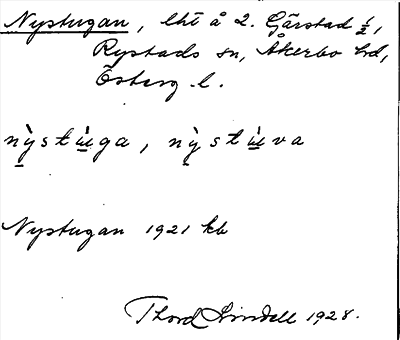 Nystugan, lht å 2. Gärstad 1/2,
Rystads sn, Åkerbo hd,
Österg l.
nỳstùga, nỳstùva
Nystugan 1921 kb
Thord Lindell 1928.